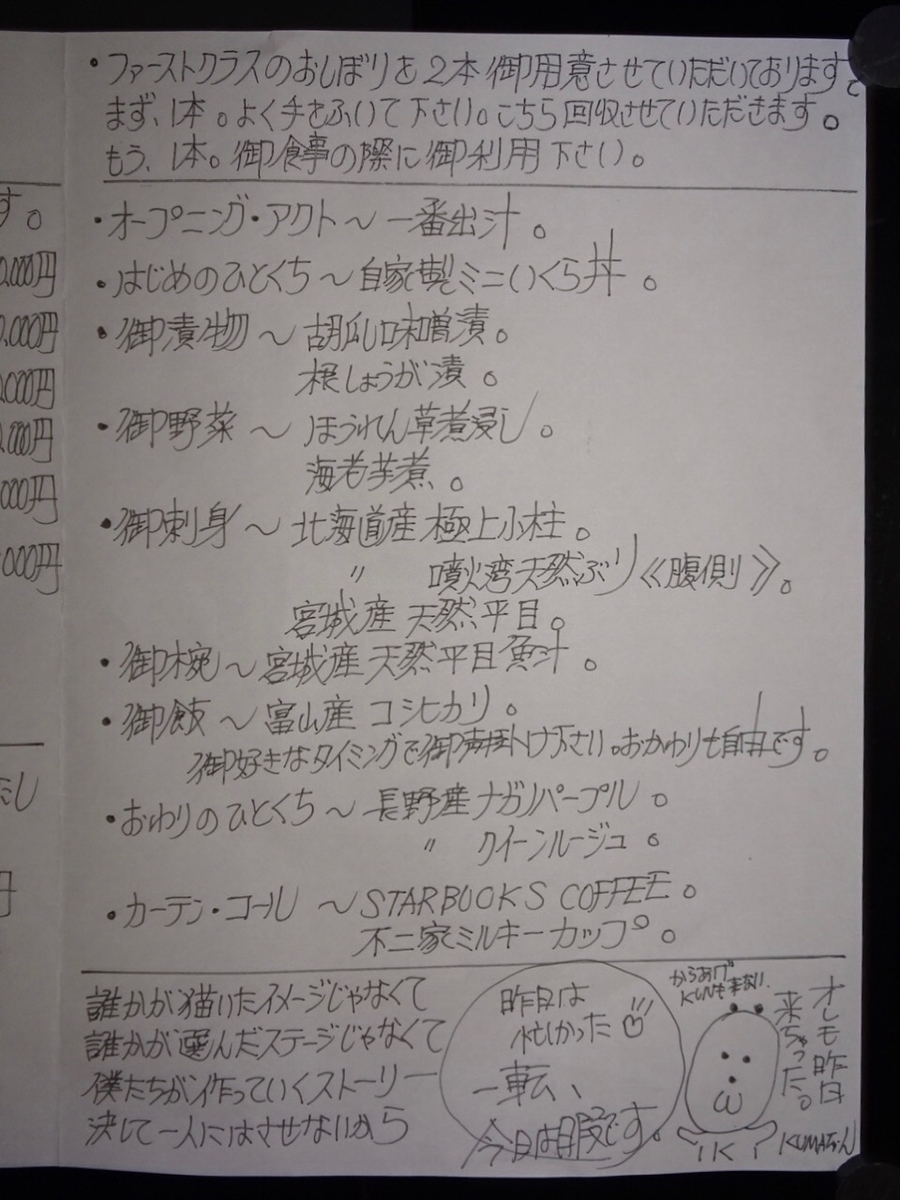 ・ファーストクラスのおしぼりを2本御用意させていただいております。
まず、1本。よく手をふいて下さい。こちら回収させていただきます。
もう、1本。御食事の際に御利用下さい。
・オープニング・アクト～一番出汁。
・はじめのひとくち～自家製ミニいくら丼。
・御漬物～胡瓜味噌漬。
根しょうが漬。
・御野菜～ほうれん草煮浸し。
海老芋煮。
・御刺身～北海道産極上小柱。
〃 噴火湾天然ぶり≪腹側≫。
宮城産天然平目。
・御椀～宮城産天然平目魚汁。
・御飯～富山産コシヒカリ。
御好きなタイミングで御声掛け下さい。おかわりも自由です。
・おわりのひとくち～長野産ナガノパープル。
〃 クイーンルージュ。
・カーテン・コール～STARBUCKS COFFEE。
不二家ミルキーカップ。
誰かが描いたイメージじゃなくて
誰かが選んだステージじゃなくて
僕たちが作っていくストーリー
決して一人にはさせないから
昨日は
忙しかった
一転、
今日は暇です。
からあげ
KUNも来ない。
オレも昨日
来ちゃった。
す。
0.000円
0.000円
0.000円
0.000円
000円
000円
円